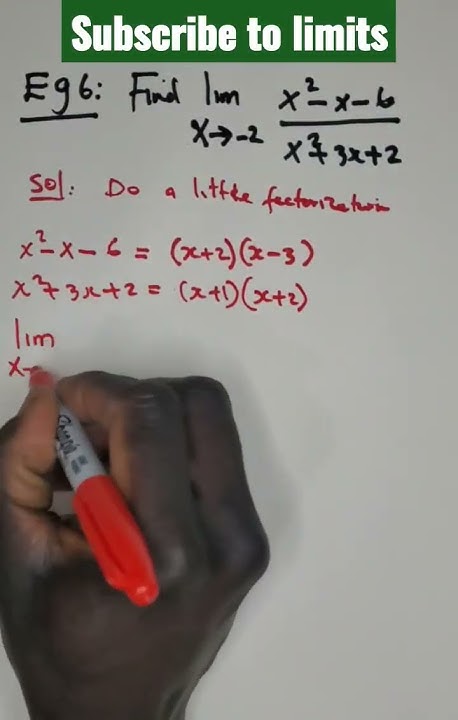 Subscribe to limits
Eg 6: Find lim x→-2 (x² - x - 6)/(x² + 3x + 2)
Sol: Do a little factorization
x² - x - 6 = (x+2)(x-3)
x² + 3x + 2 = (x+1)(x+2)
lim
x→